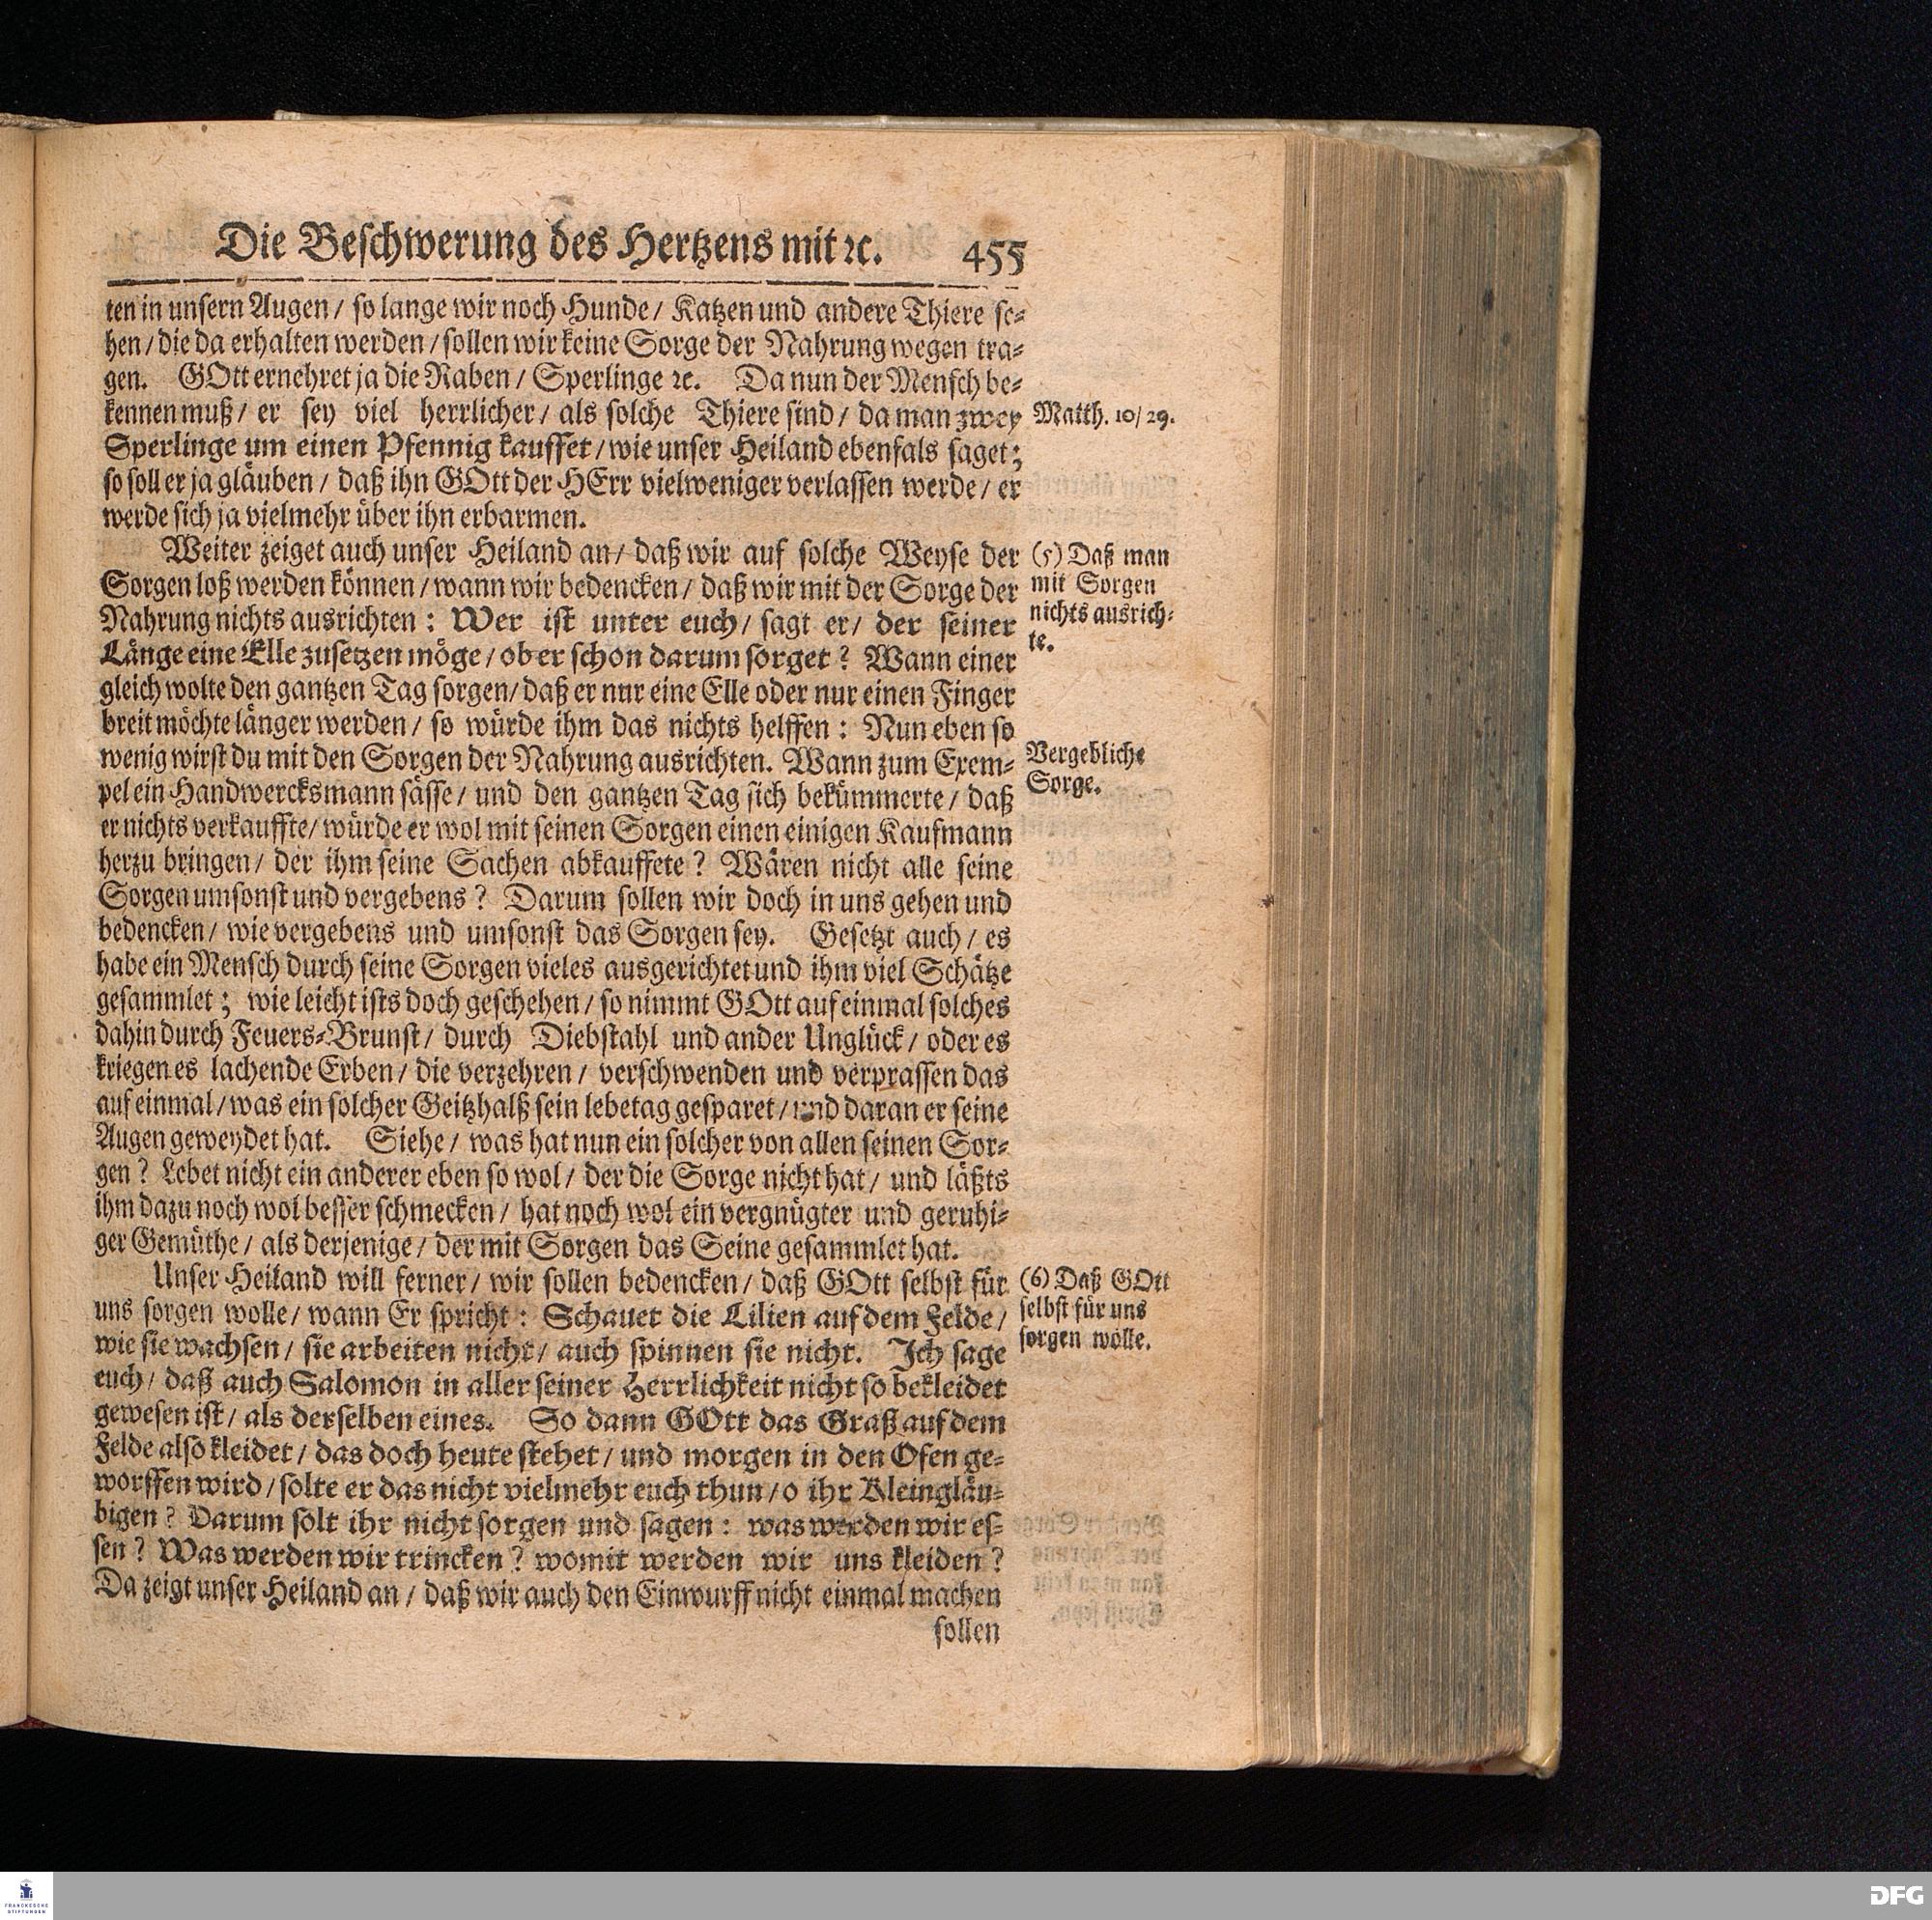 Die Beschwerung des Hertzens mit ꝛc. 455
ten in unsern Augen / so lange wir noch Hunde / Katzen und andere Thiere se-
hen / die da erhalten werden / sollen wir keine Sorge der Nahrung wegen tra-
gen. GOtt ernehret ja die Raben / Sperlinge ꝛc. Da nun der Mensch be-
kennen muß / er sey viel herrlicher / als solche Thiere sind / da man zwey
Sperlinge um einen Pfennig kauffet / wie unser Heiland ebenfals saget;
so soll er ja gläuben / daß ihn GOtt der HErr vielweniger verlassen werde / er
werde sich ja vielmehr über ihn erbarmen.
Matth. 10/29.
Weiter zeiget auch unser Heiland an / daß wir auf solche Weyse der
Sorgen loß werden können / wann wir bedencken / daß wir mit der Sorge der
Nahrung nichts ausrichten : Wer ist unter euch / sagt er / der seiner
Länge eine Elle zusetzen möge / ob er schon darum sorget ? Wann einer
gleich wolte den gantzen Tag sorgen / daß er nur eine Elle oder nur einen Finger
breit möchte länger werden / so würde ihm das nichts helffen : Nun eben so
wenig wirst du mit den Sorgen der Nahrung ausrichten. Wann zum Exem-
pel ein Handwercksmann sässe / und den gantzen Tag sich bekümmerte / daß
er nichts verkauffte / würde er wol mit seinen Sorgen einen einigen Kaufmann
herzu bringen / der ihm seine Sachen abkauffete ? Wären nicht alle seine
Sorgen umsonst und vergebens ? Darum sollen wir doch in uns gehen und
bedencken / wie vergebens und umsonst das Sorgen sey. Gesetzt auch / es
habe ein Mensch durch seine Sorgen vieles ausgerichtet und ihm viel Schätze
gesammlet ; wie leicht ists doch geschehen / so nimmt GOtt auf einmal solches
dahin durch Feuers-Brunst / durch Diebstahl und ander Unglück / oder es
kriegen es lachende Erben / die verzehren / verschwenden und verprassen das
auf einmal / was ein solcher Geitzhalß sein lebetag gesparet / und daran er seine
Augen geweydet hat. Siehe / was hat nun ein solcher von allen seinen Sor-
gen ? Lebet nicht ein anderer eben so wol / der die Sorge nicht hat / und läßts
ihm dazu noch wol besser schmecken / hat noch wol ein vergnügter und geruhi-
ger Gemüthe / als derjenige / der mit Sorgen das Seine gesammlet hat.
(5) Daß man
mit Sorgen
nichts ausrich-
te.
Vergebliche
Sorge.
Unser Heiland will ferner / wir sollen bedencken / daß GOtt selbst für
uns sorgen wolle / wann Er spricht : Schauet die Lilien auf dem Felde /
wie sie wachsen / sie arbeiten nicht / auch spinnen sie nicht. Ich sage
euch / daß auch Salomon in aller seiner Herrlichkeit nicht so bekleidet
gewesen ist / als derselben eines. So dann GOtt das Graß auf dem
Felde also kleidet / das doch heute stehet / und morgen in den Ofen ge-
worffen wird / solte er das nicht vielmehr euch thun / o ihr Kleingläu-
bigen ? Darum solt ihr nicht sorgen und sagen : was werden wir es-
sen ? Was werden wir trincken ? womit werden wir uns kleiden ?
Da zeigt unser Heiland an / daß wir auch den Einwurff nicht einmal machen
sollen
(6) Daß GOtt
selbst für uns
sorgen wolle.
FRANCKESCHE
STIFTUNGEN
DFG